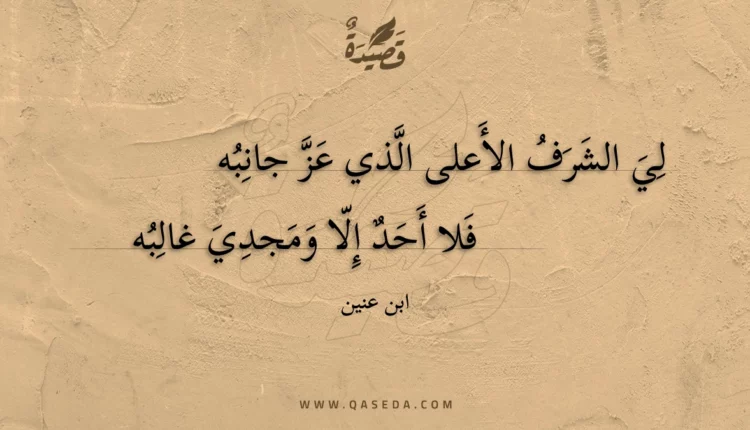 قَصِيْدَةٌ
لِيَ الشَرَفُ الأَعلى الَّذي عَزَّ جانِبُه
فَلا أَحَدٌ إِلّا وَمَجدِيَ غالِبُه
ابن عنين
WWW.QASEDA.COM